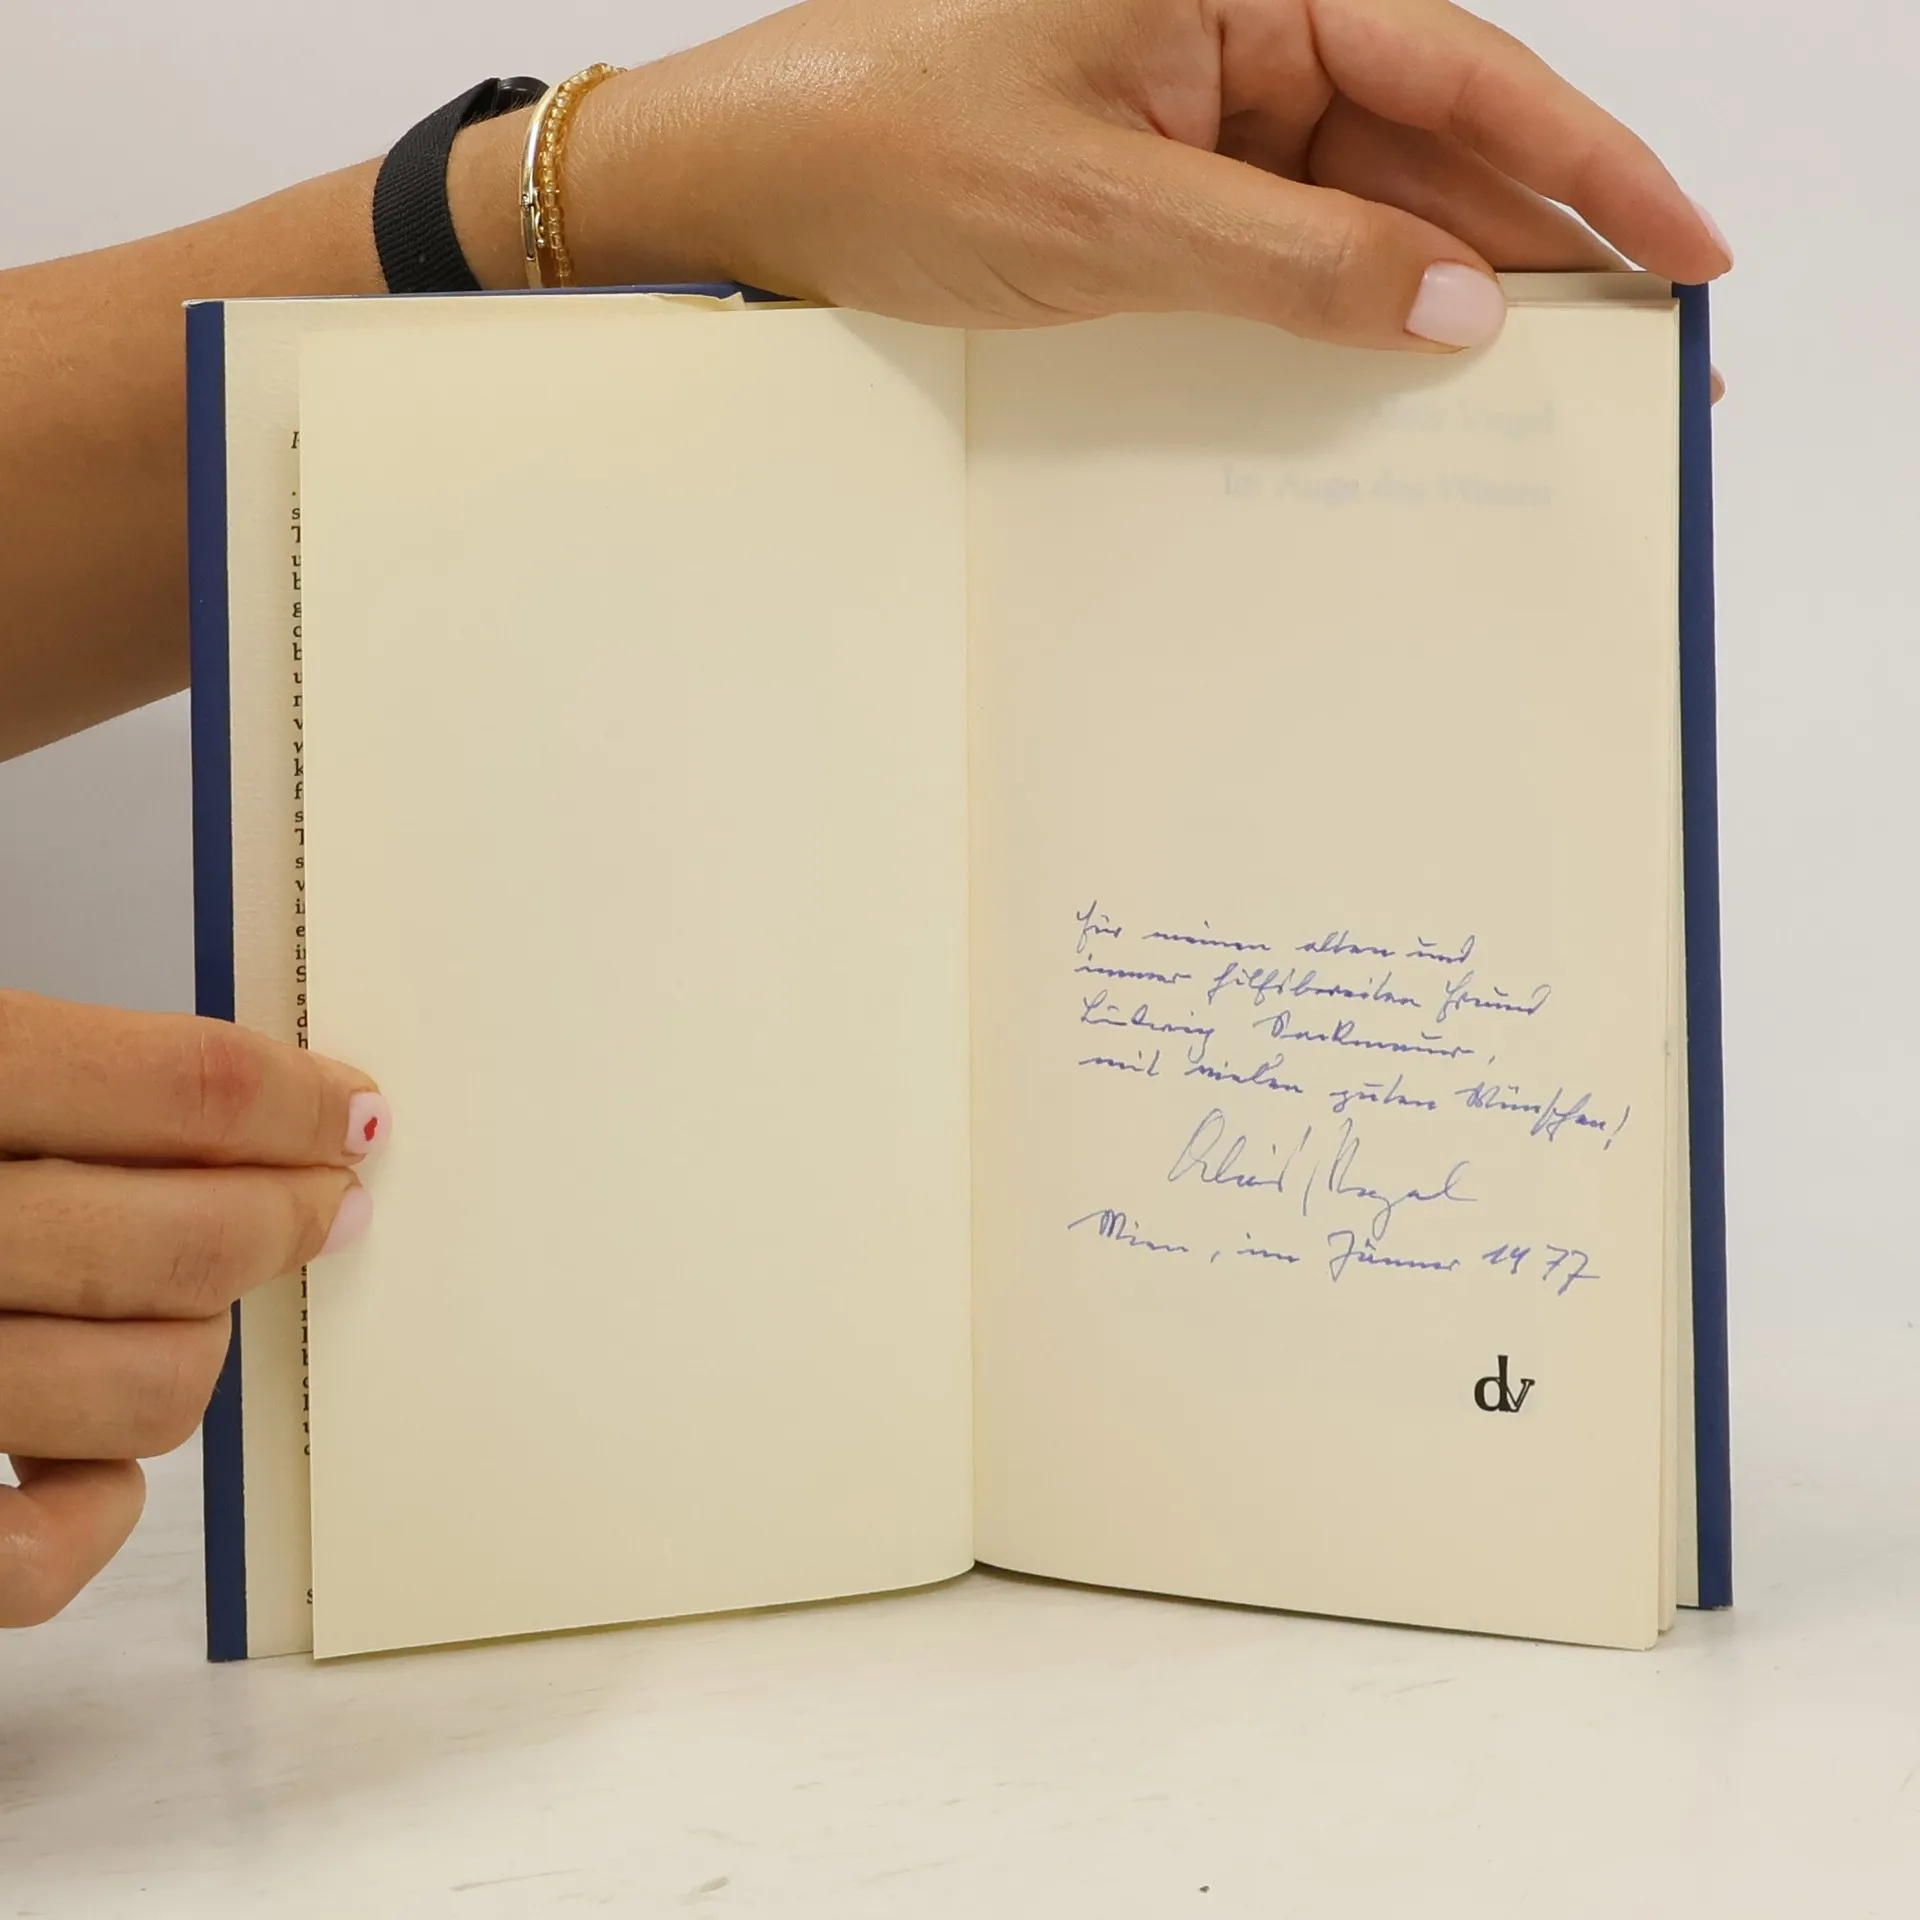 Alois Vogel
Im Auge das Wissen
Für meinen alten und
immer hilfsbereiten Freund
Ludwig Sackmauer,
mit vielen guten Wünschen!
Alois Vogel
Wien, im Jänner 1977
dv